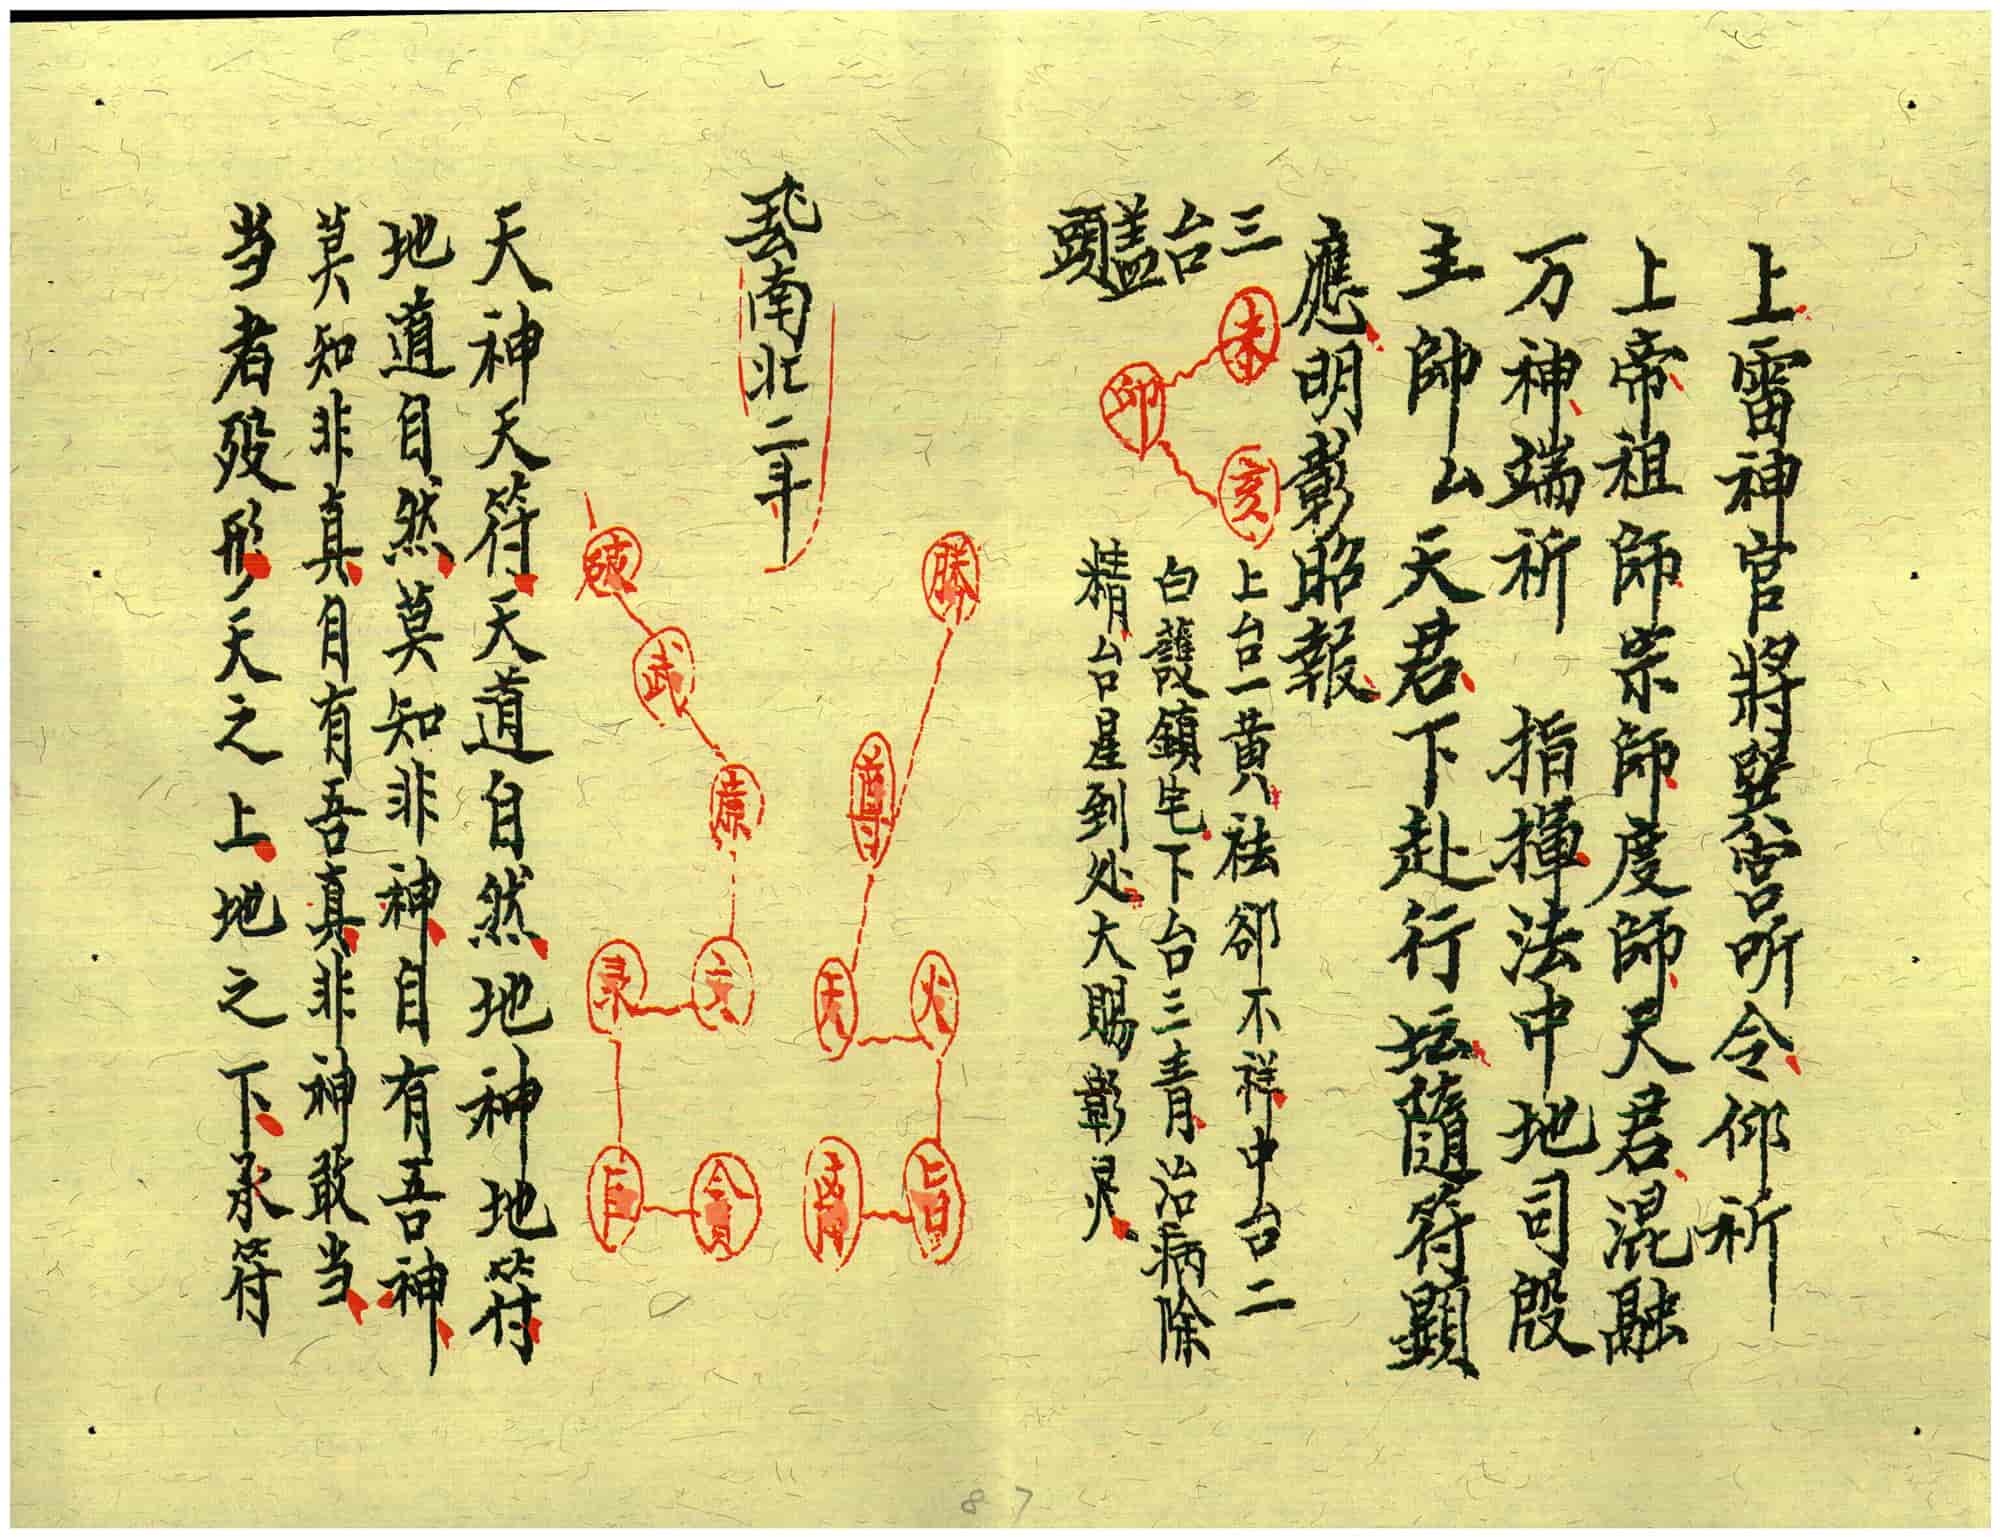 上雷神官將巽宮听令仰祈
上帝祖師宗師度師天君混融
万神端祈 指揮法中地司殷
主帥厶天君下赴行坛隨符顯
應明彰昭報
三台盖頭
未
印
亥
上台一黄祛卻不祥中台二
白護鎮宅下台三青治病除
精台星到处大賜彰灵
步南北二斗
勝
尊
天
火
旨
破
武
廉
文
录
巨
貪
天神天符天道自然地神地符
地道自然莫知非神自有吾神
莫知非真自有吾真非神敢当
当者殁形天之上地之下承符